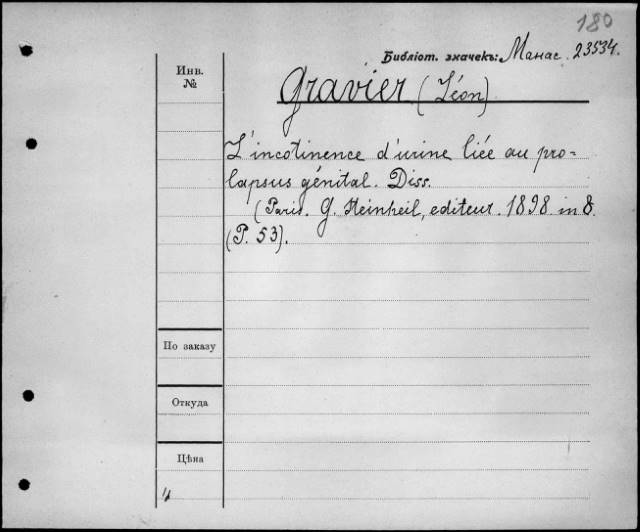 180
Библіот. значекъ: Манас. 23534.
Инв. №
Gravier (Léon)
L'incotinence d'urine liée au pro-
lapsus génital. Diss.
(Paris. G. Steinheil, editeur. 1898 in 8.
(P. 53).
По заказу
Откуда
Цѣна